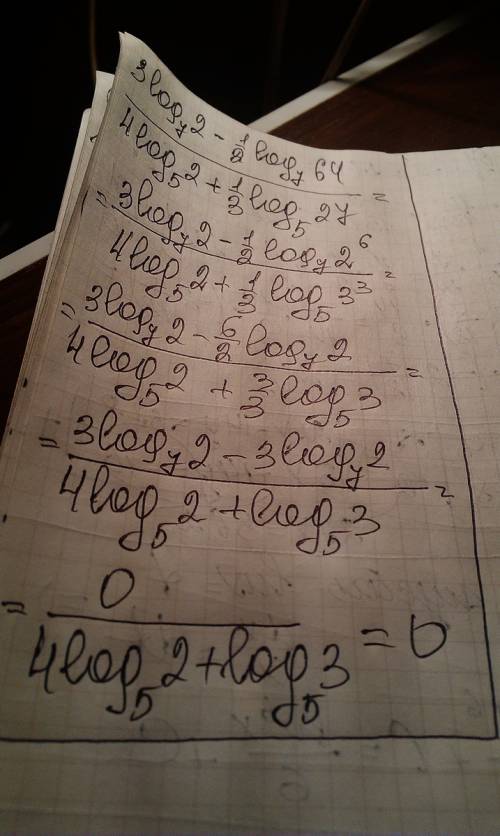 3log_y 2 - 1/2 log_y 64
4log_5 2 + 1/3 log_5 27 =
= 3log_y 2 - 1/2 log_y 2^6
4log_5 2 + 1/3 log_5 3^3 =
= 3log_y 2 - 6/2 log_y 2
4log_5 2 + 3/3 log_5 3 =
= 3log_y 2 - 3log_y 2
4log_5 2 + log_5 3 =
= 0
4log_5 2 + log_5 3 = 0